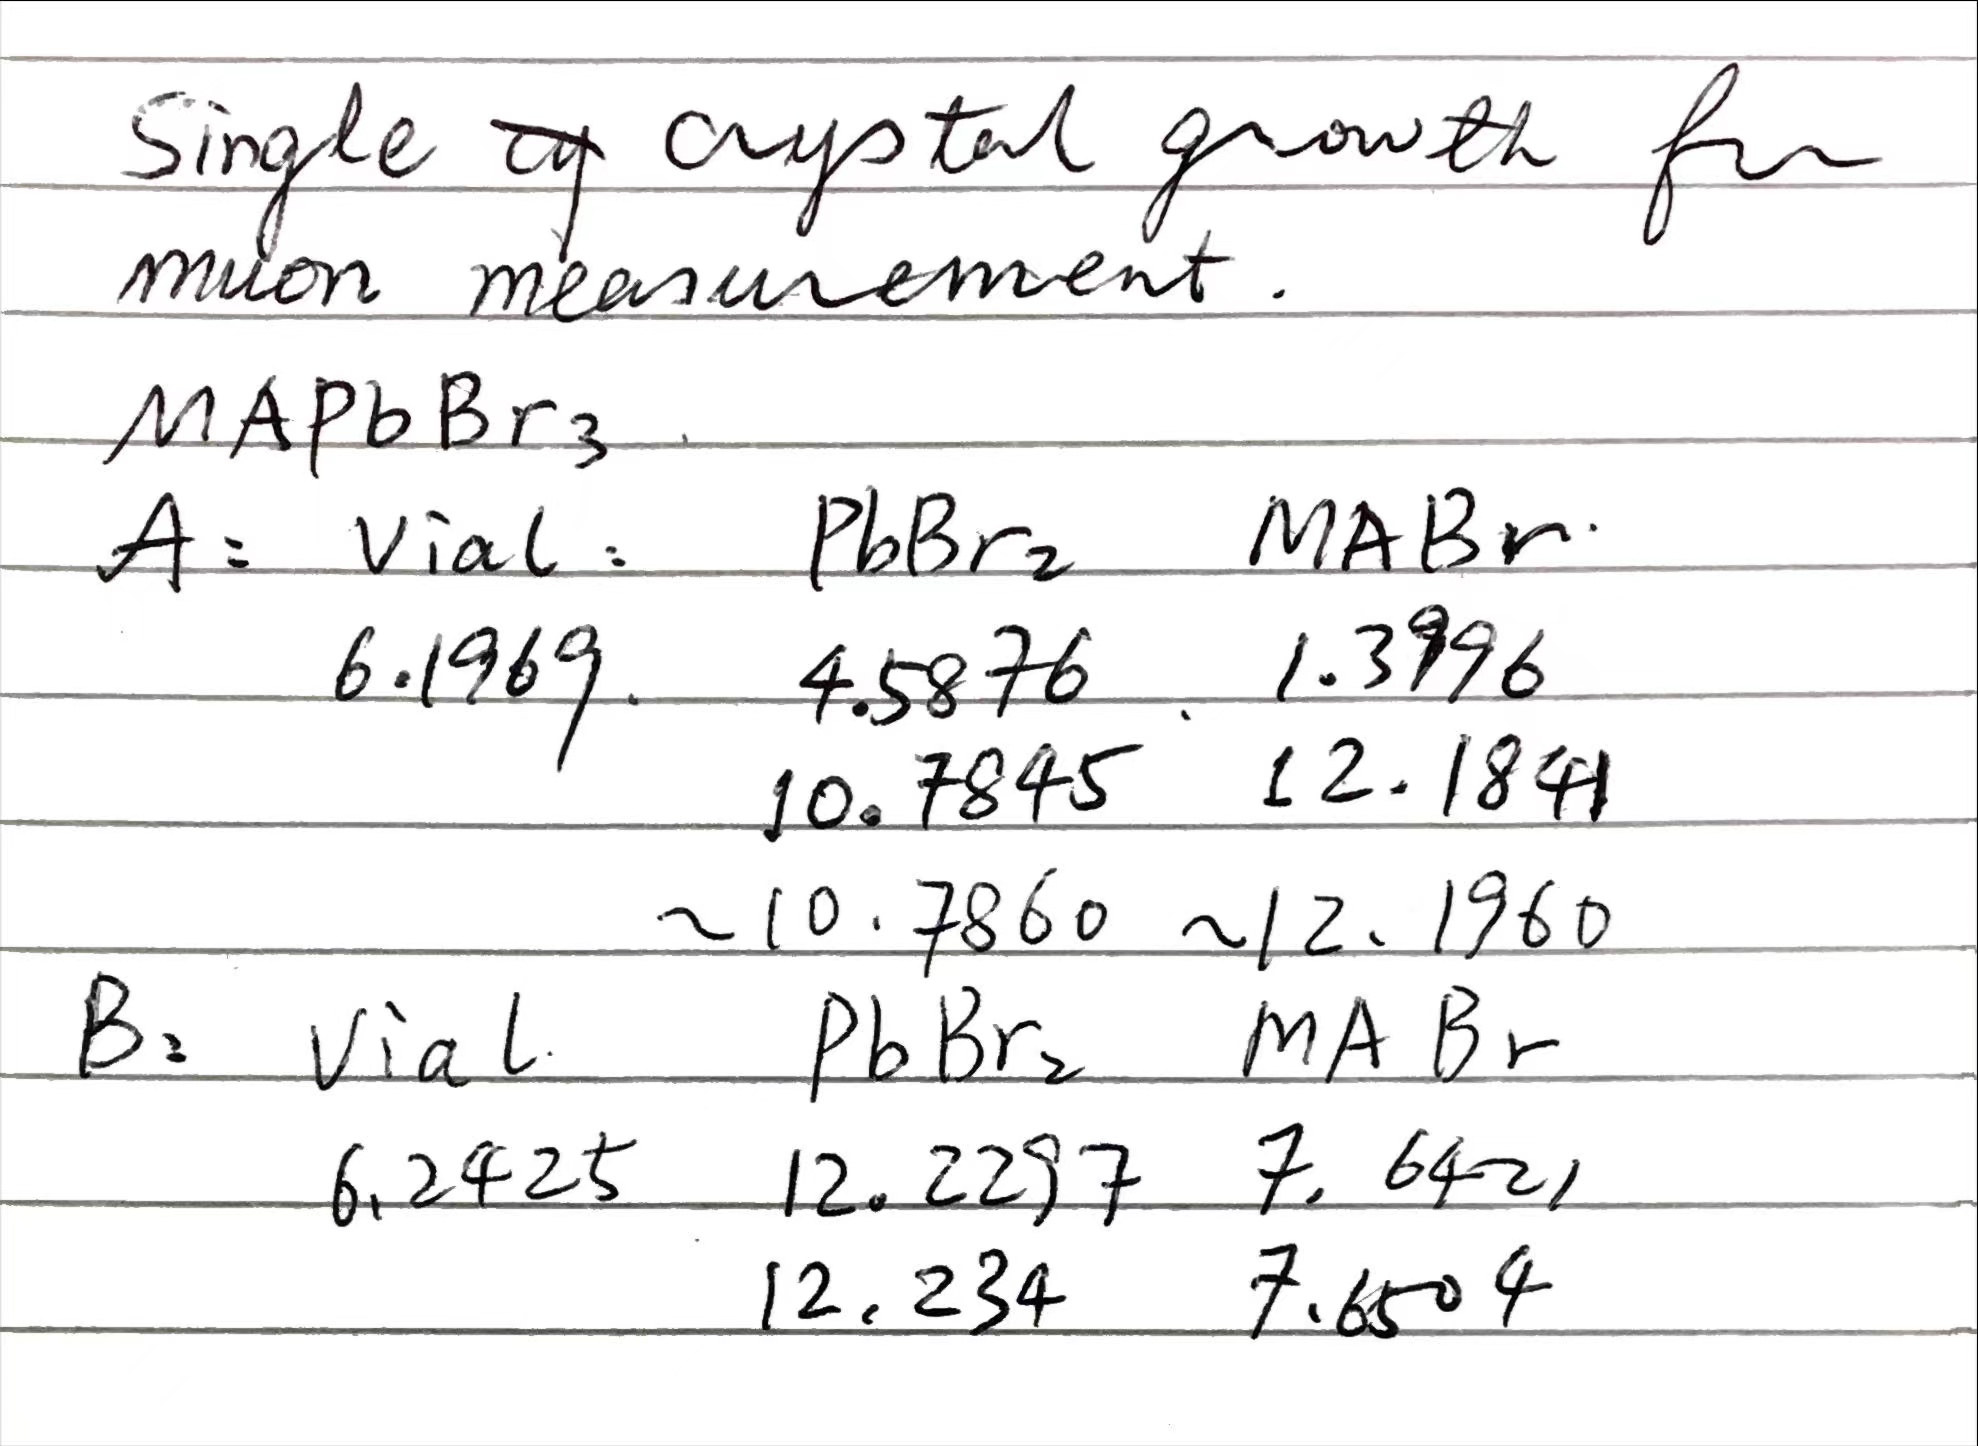 Single crystal growth for
muon measurement.
MAPbBr3
A: Vial: PbBr2 MABr.
6.1969. 4.5876 1.3996
10.7845 12.1841
~10.7860 ~12.1960
B: Vial. PbBr2 MABr
6.2425 12.2297 7.6421
12.234 7.6504